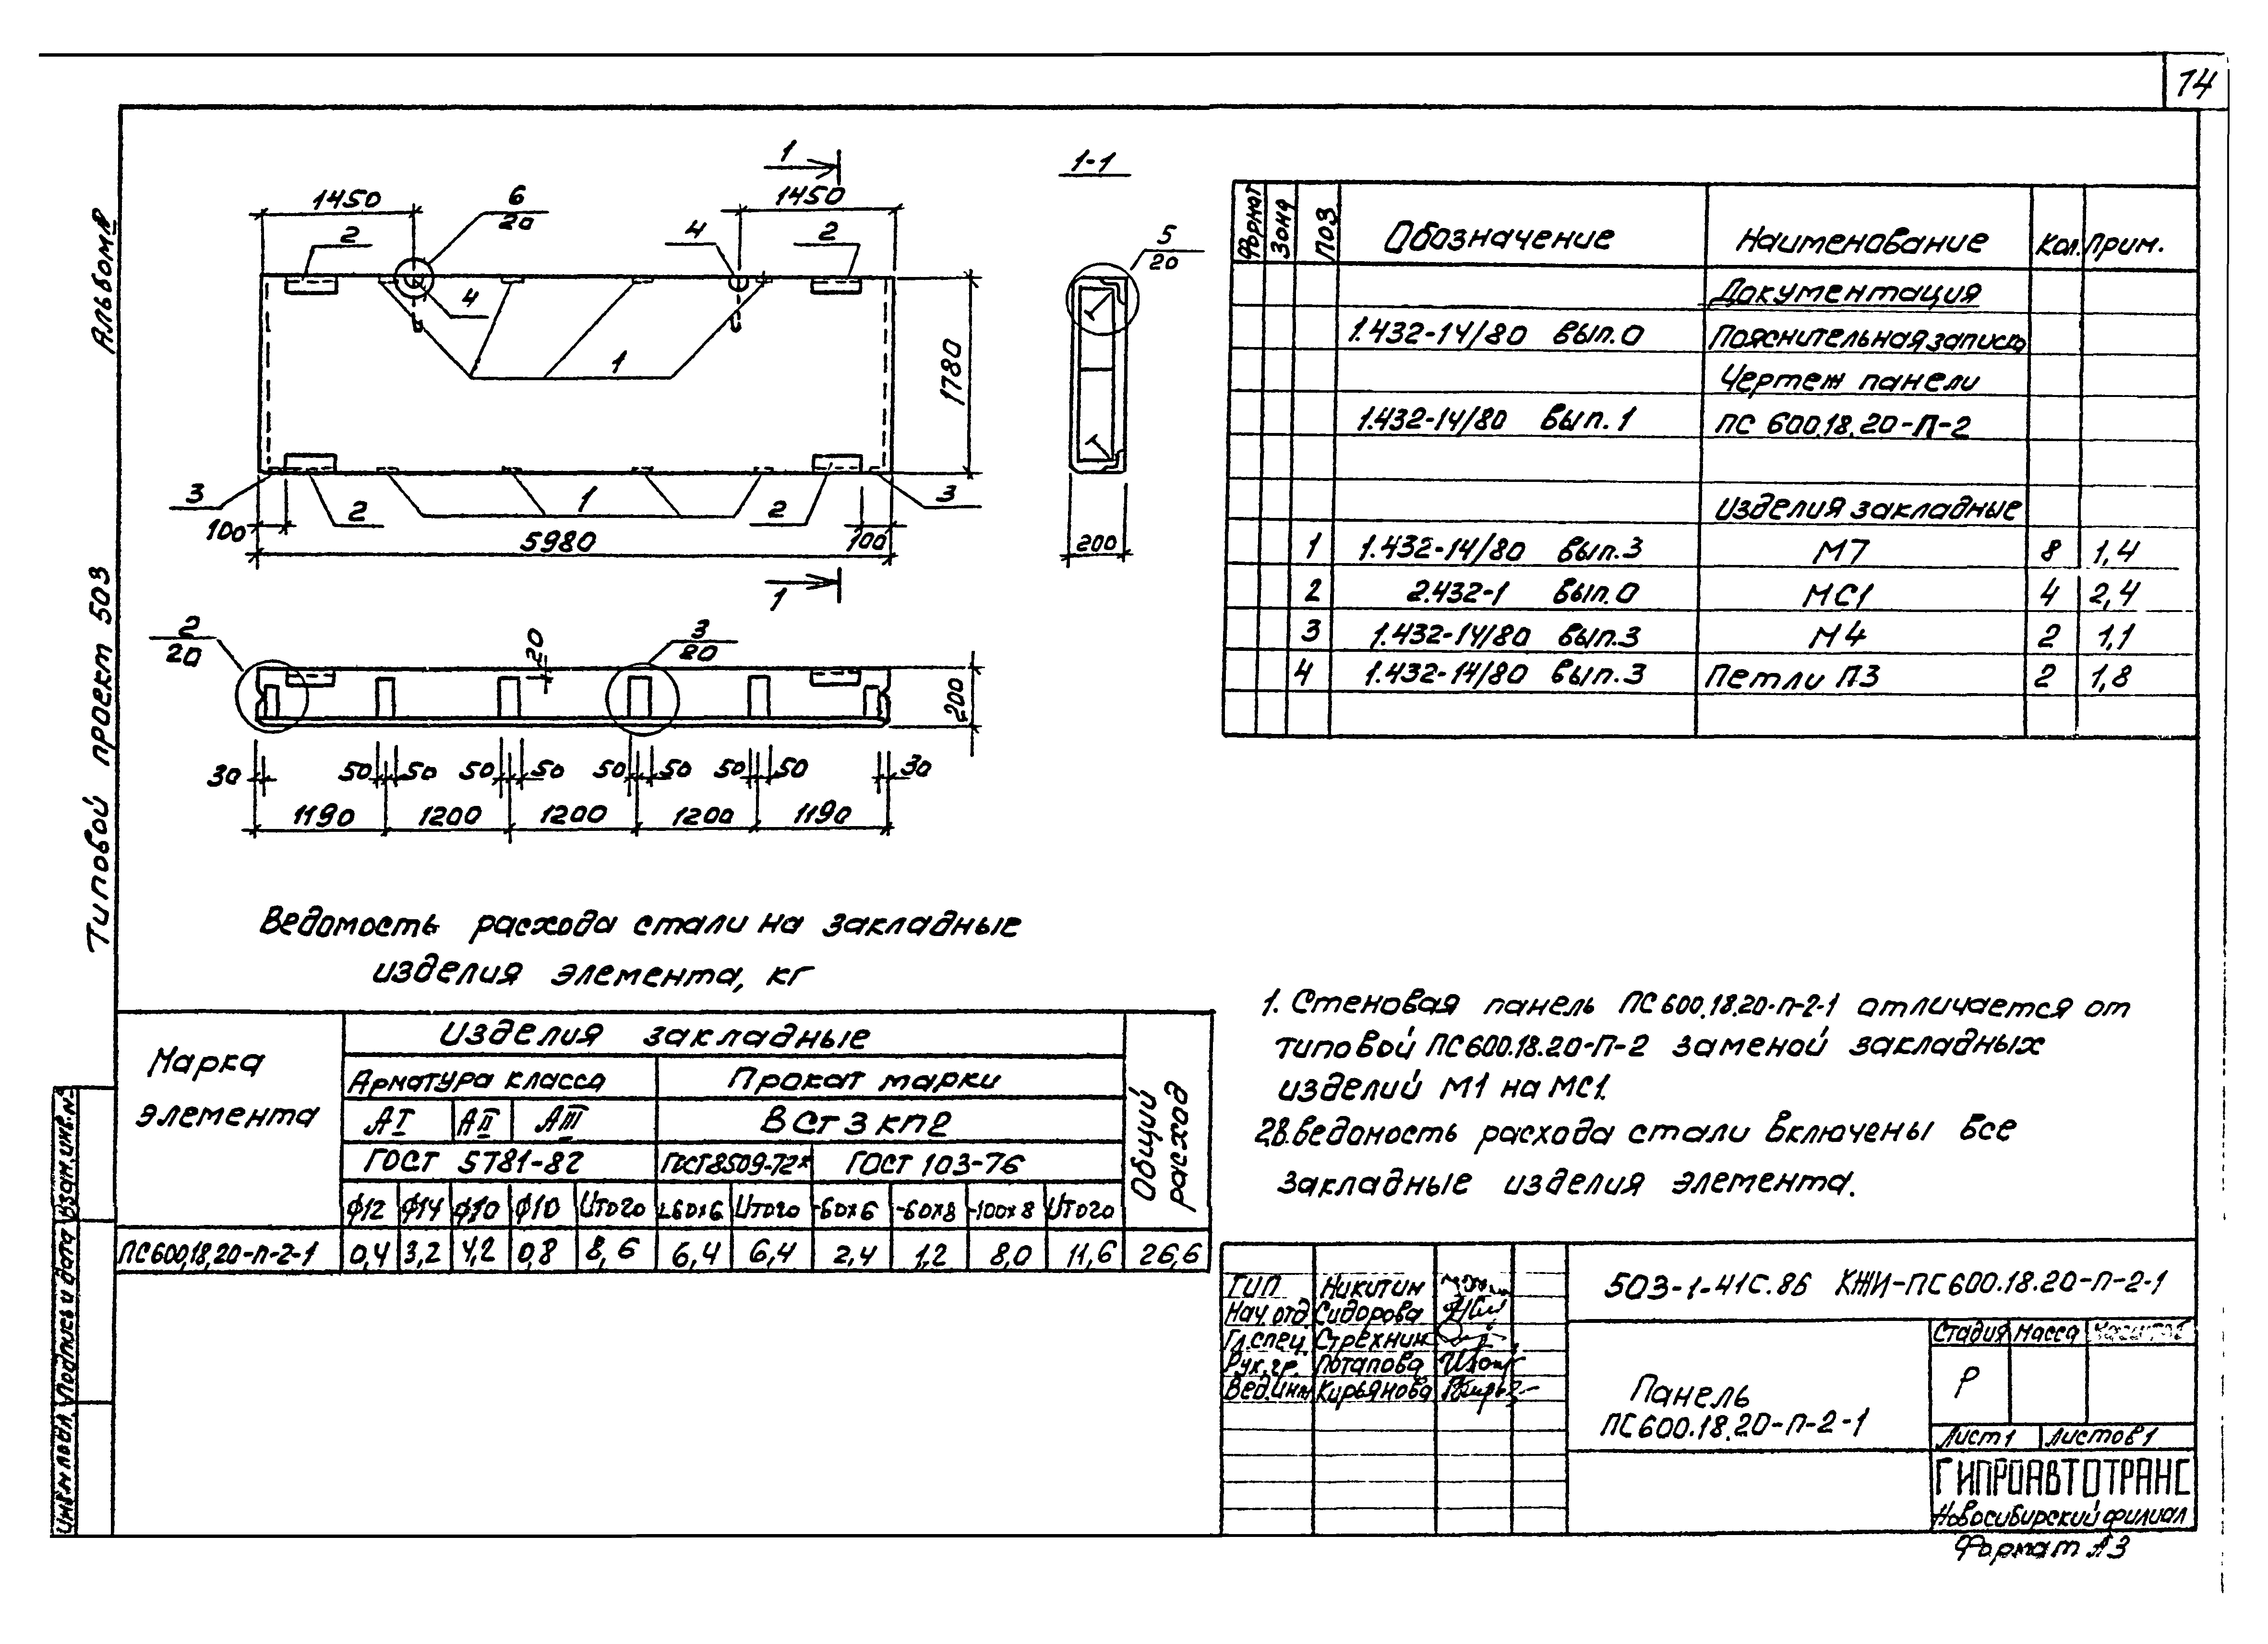 14
Альбом V
Типовой проект 503
1
1-1
1450
6
20
1450
2
4
2
5
20
4
1
1780
3
2
1
2
3
100
5980
100
200
1
2
20
20
3
20
200
30
50
50
50
50
50
50
50
50
30
1190
1200
1200
1200
1190
Формат Зона Поз Обозначение Наименование Кол. Прим.
Документация
1.432-14/80 Вып.0 Пояснительная записка
Чертеж панели
1.432-14/80 Вып.1 ПС 600.18.20-П-2
Изделия закладные
1 1.432-14/80 Вып.3 М7 8 1,4
2 2.432-1 Вып.0 МС1 4 2,4
3 1.432-14/80 Вып.3 М4 2 1,1
4 1.432-14/80 Вып.3 Петли П3 2 1,8
Ведомость расхода стали на закладные
изделия элемента, кг
Марка элемента
Изделия закладные
Общий расход
Арматура класса Прокат марки
АI АII АIII ВСт3кп2
ГОСТ 5781-82 ГОСТ 8509-72* ГОСТ 103-76
ф12 ф14 ф10 ф10 Итого L60х6 Итого -60х6 -60х8 -100х8 Итого
ПС600.18.20-П-2-1 0,4 3,2 4,2 0,8 8,6 6,4 6,4 2,4 1,2 8,0 11,6 26,6
1. Стеновая панель ПС600.18.20-П-2-1 отличается от
типовой ПС600.18.20-П-2 заменой закладных
изделий М1 на МС1.
2В.ведомость расхода стали включены все
закладные изделия элемента.
503-1-41С.86 КЖИ-ПС600.18.20-П-2-1
ГИП Никитин
Нач.отд. Сидорова
Гл.спец. Стрехнин
Рук.гр. Потапова
Вед.инж Кирьянова
Панель
ПС600.18.20-П-2-1
Стадия Масса Масштаб
Р
Лист 1 Листов 1
ГИПРОАВТОТРАНС
Новосибирский филиал
Формат А3
Инв.№ подл. Подпись и дата Взам.инв.№